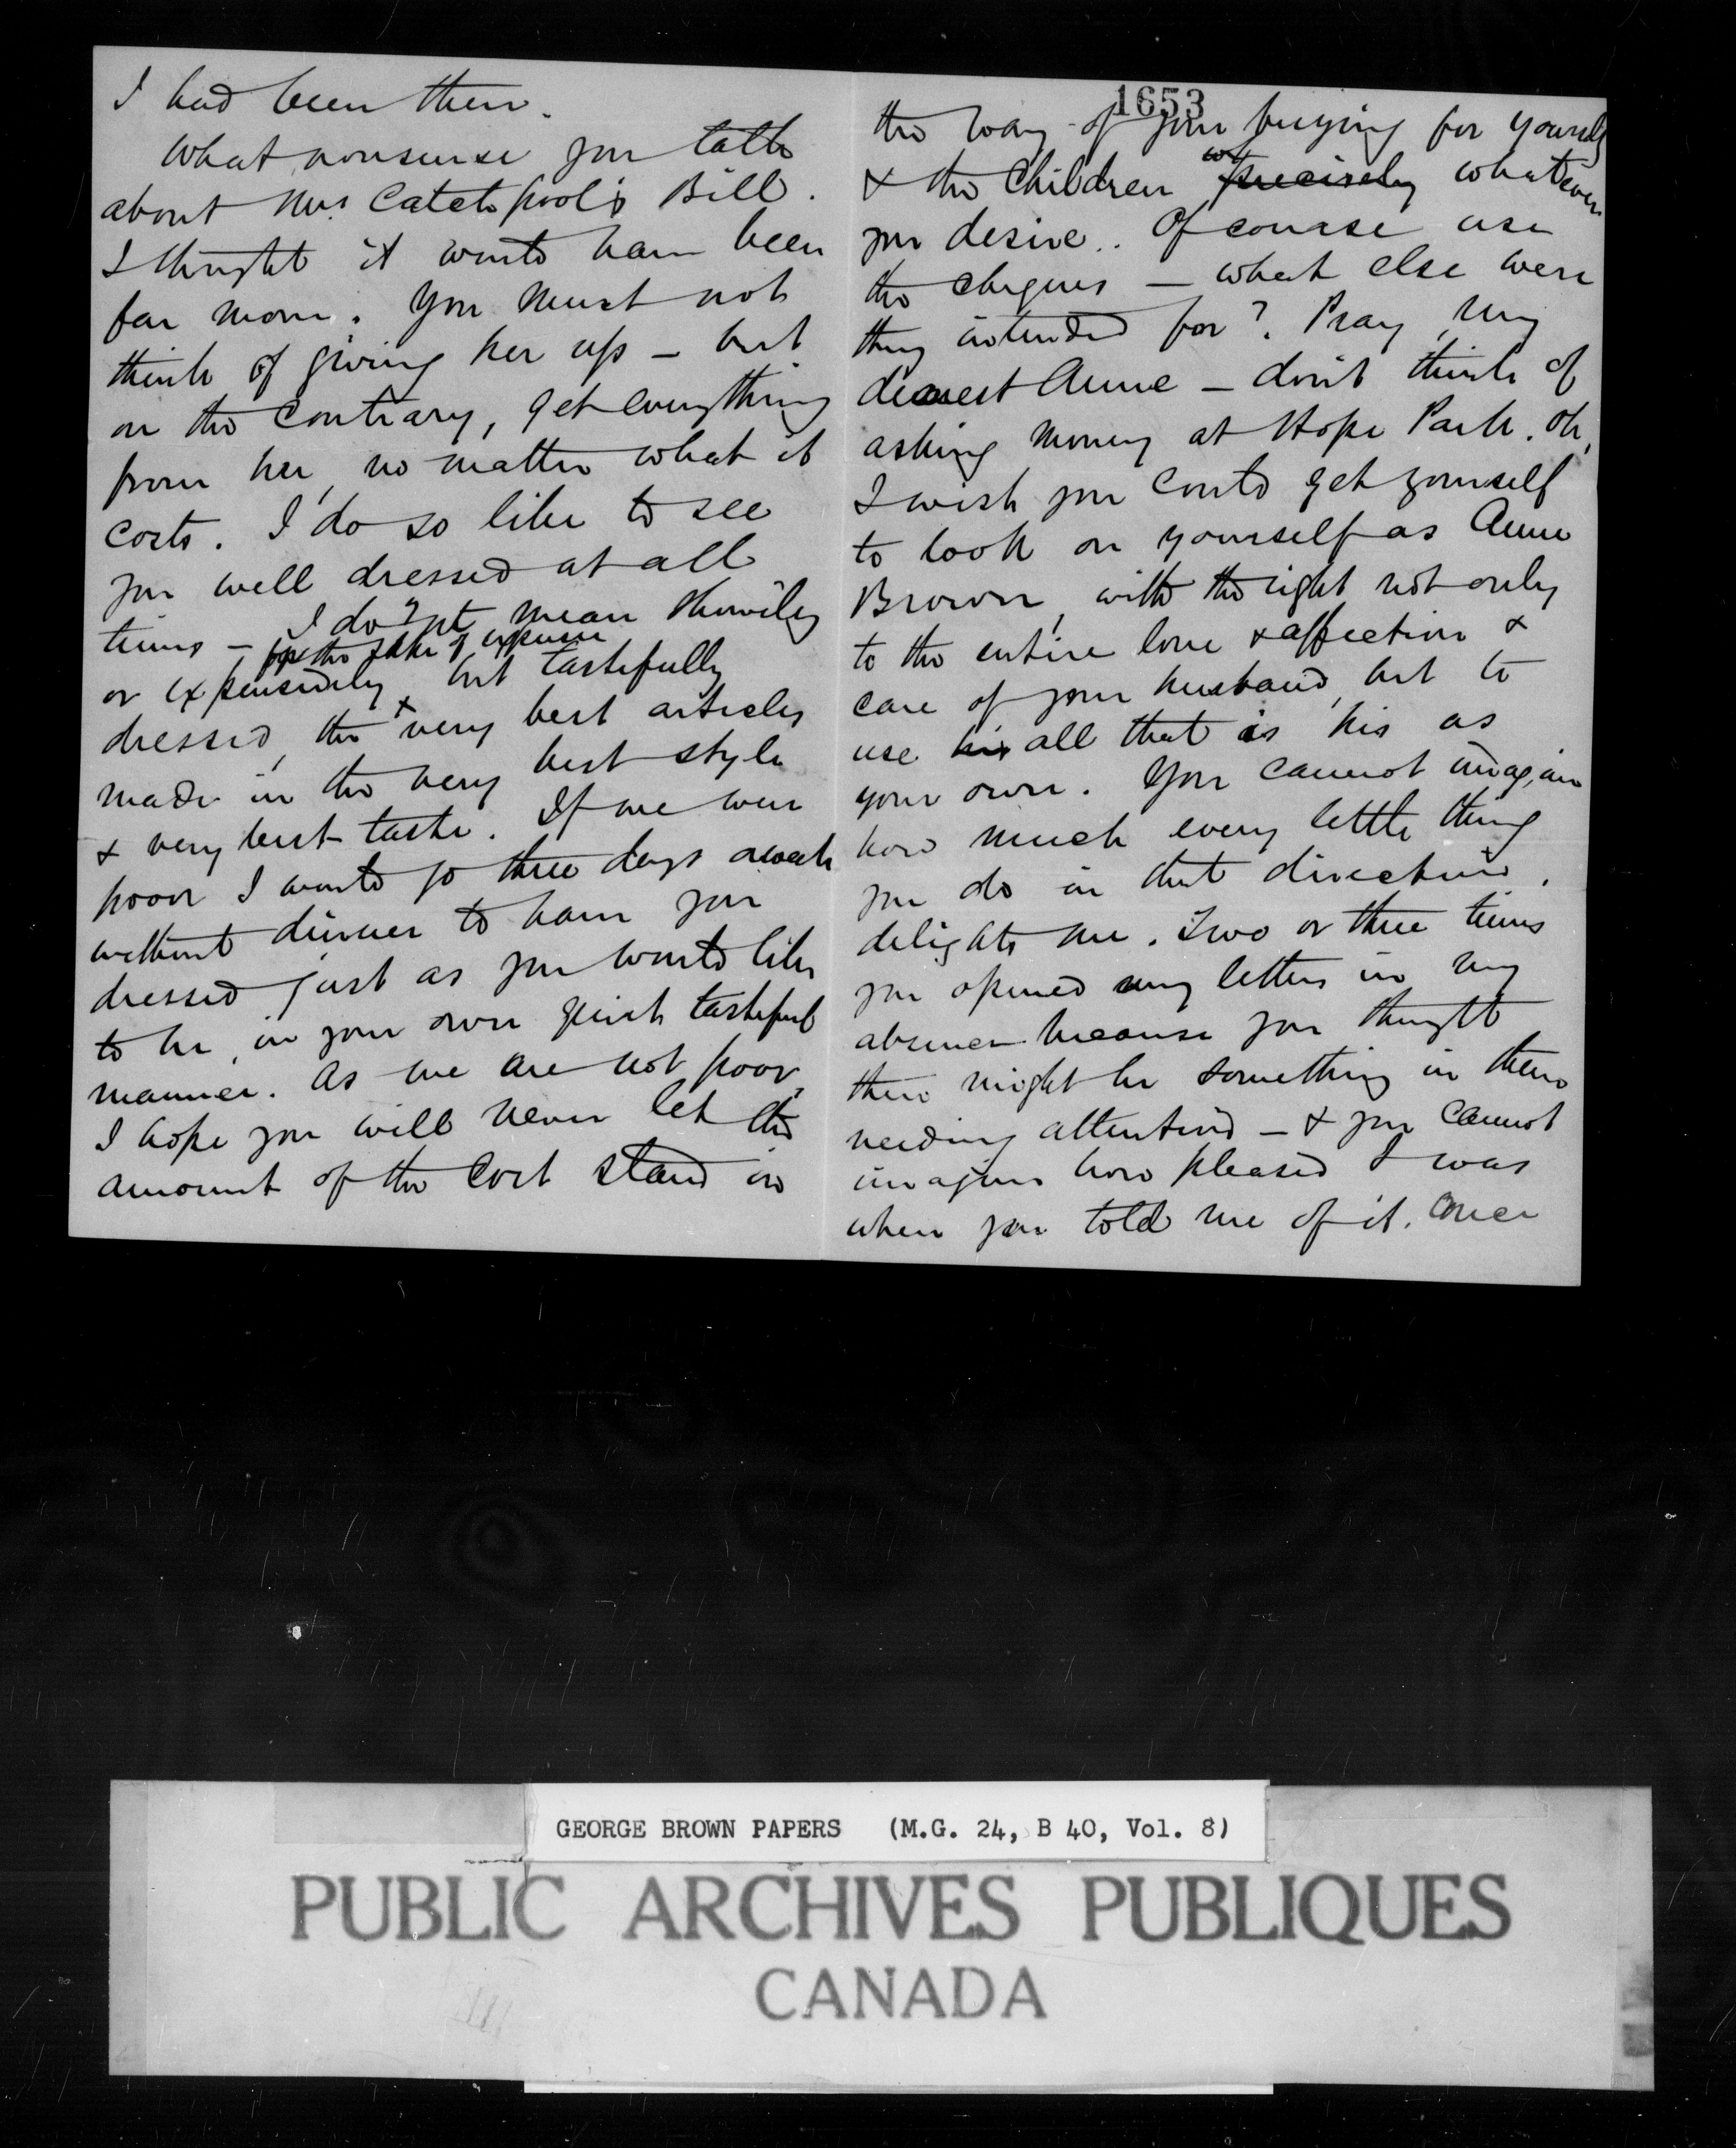 I had been there.
What nonsense you talk
about Mrs Catchpool's Bill.
I thought it would have been
far more. You must not
think of giving her up – but
on the contrary, get everything
from her, no matter what it
costs. I do so like to see
you well dressed at all
times – I don't mean showily
or expensively for the sake of expense but tastefully
dressed, the very best articles
made in the very best style
& very best taste. If we were
poor I would go three days a week
without dinner to have you
dressed just as you would like
to be, in your own quiet tasteful
manner. As we are not poor,
I hope you will never let the
amount of the cost stand in
1653
the way of your buying for yourself
& the children precisely whatever
you desire. Of course use
the cheques – what else were
they intended for? Pray, my
dearest Anne – don't think of
asking money at Hope Park. Oh,
I wish you could get yourself
to look on yourself as Anne
Brown, with the right not only
to the entire love & affection &
care of your husband, but to
use his all that is his as
your own. You cannot imagine
how much every little thing
you do in that direction,
delights me. Two or three times
you opened my letters in my
absence because you thought
there might be something in them
needing attention – & you cannot
imagine how pleased I was
when you told me of it. Once
GEORGE BROWN PAPERS (M.G. 24, B 40, Vol. 8)
PUBLIC ARCHIVES PUBLIQUES
CANADA